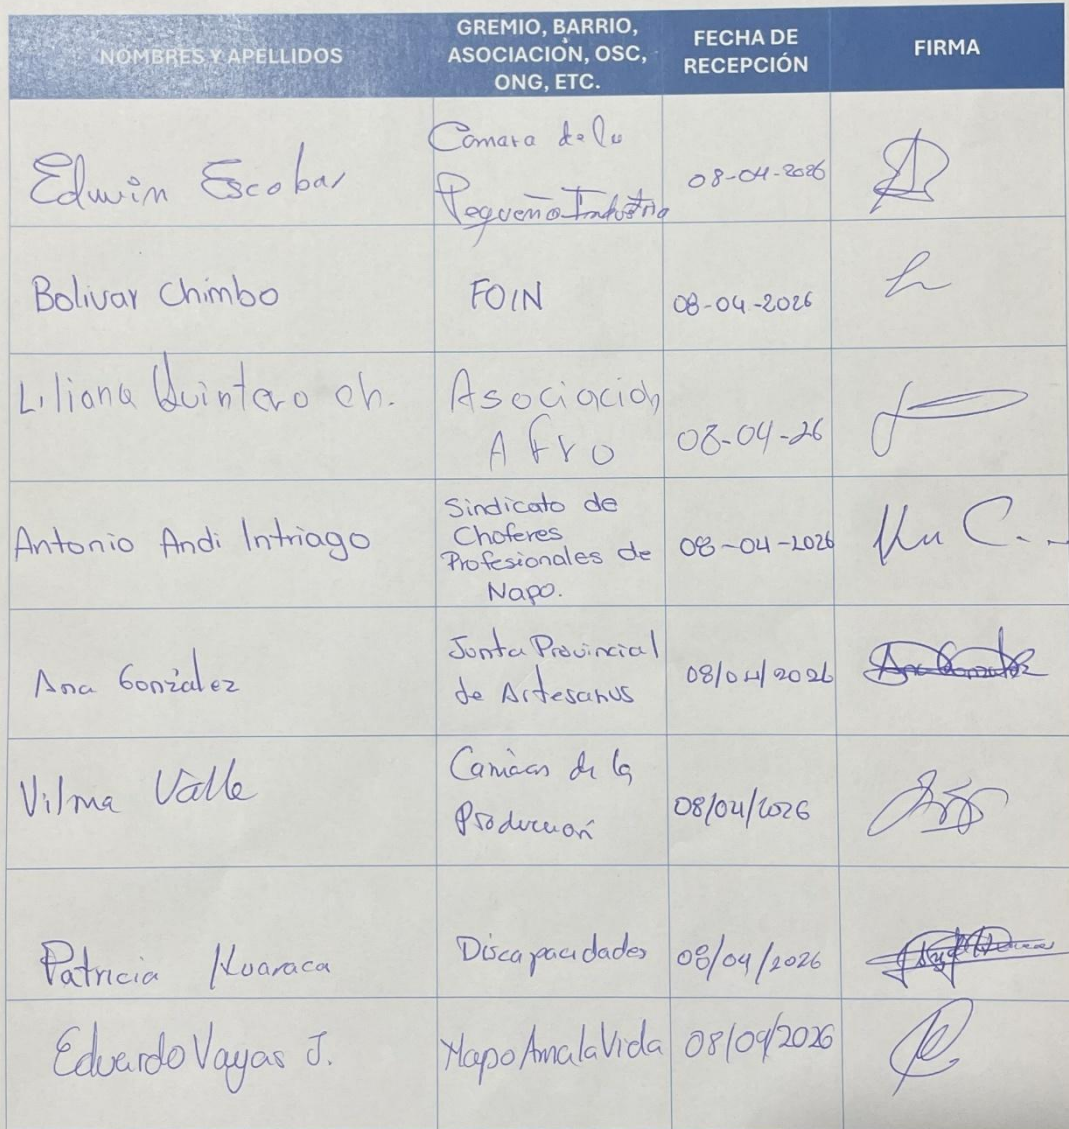 NOMBRES Y APELLIDOS
GREMIO, BARRIO,
ASOCIACIÓN, OSC,
ONG, ETC.
FECHA DE
RECEPCIÓN
FIRMA
Edwin Escobar
Camara de la
Pequeña Industria
08-04-2026
Bolivar Chimbo
FOIN
08-04-2026
Liliana Quintero ch.
Asociación
Afro
08-04-26
Antonio Andi Intriago
Sindicato de
Choferes
Profesionales de
Napo.
08-04-2026
Ana González
Junta Provincial
de Artesanos
08/04/2026
Ana González
Vilma Valle
de la
Producción
08/04/2026
Patricia
Discapacidades
08/04/2026
Eduardo J.
Napo Ama la Vida
08/04/2026